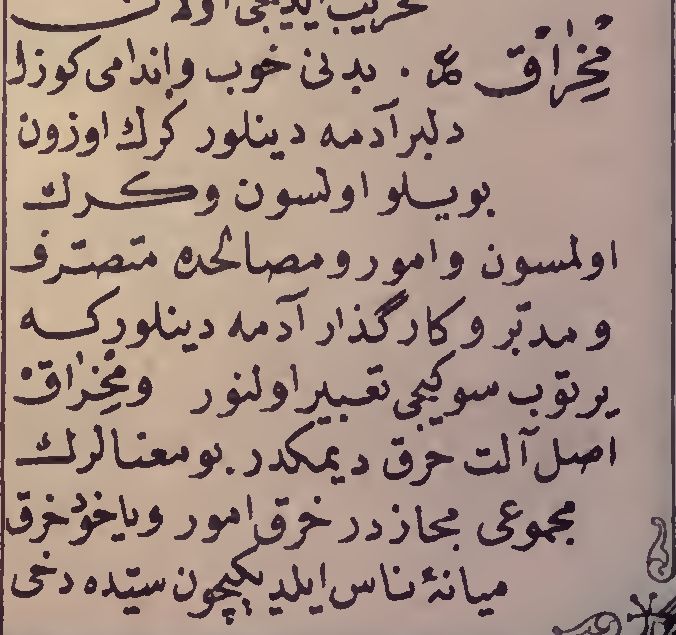 تخريب ايلديكى اولان
مُخِرَاقْ بدنى خوب واندامى كوزل
دلبر آدمه دينلور كرك اوزون
بويلو اولسون وكرك
اولمسون وامور ومصالحده متصرف
ومدبّر وكارگذار آدمه دينلوركه
يرتوب سوكيجى تعبير اولنور ومِخْرَاقْ
اصل آلت خرق ديمكدر بو معنالرك
مجموعى مجازدر خرق امور وياخود خرق
ميانهٔ ناس ايلديكيچون ستيده دخى